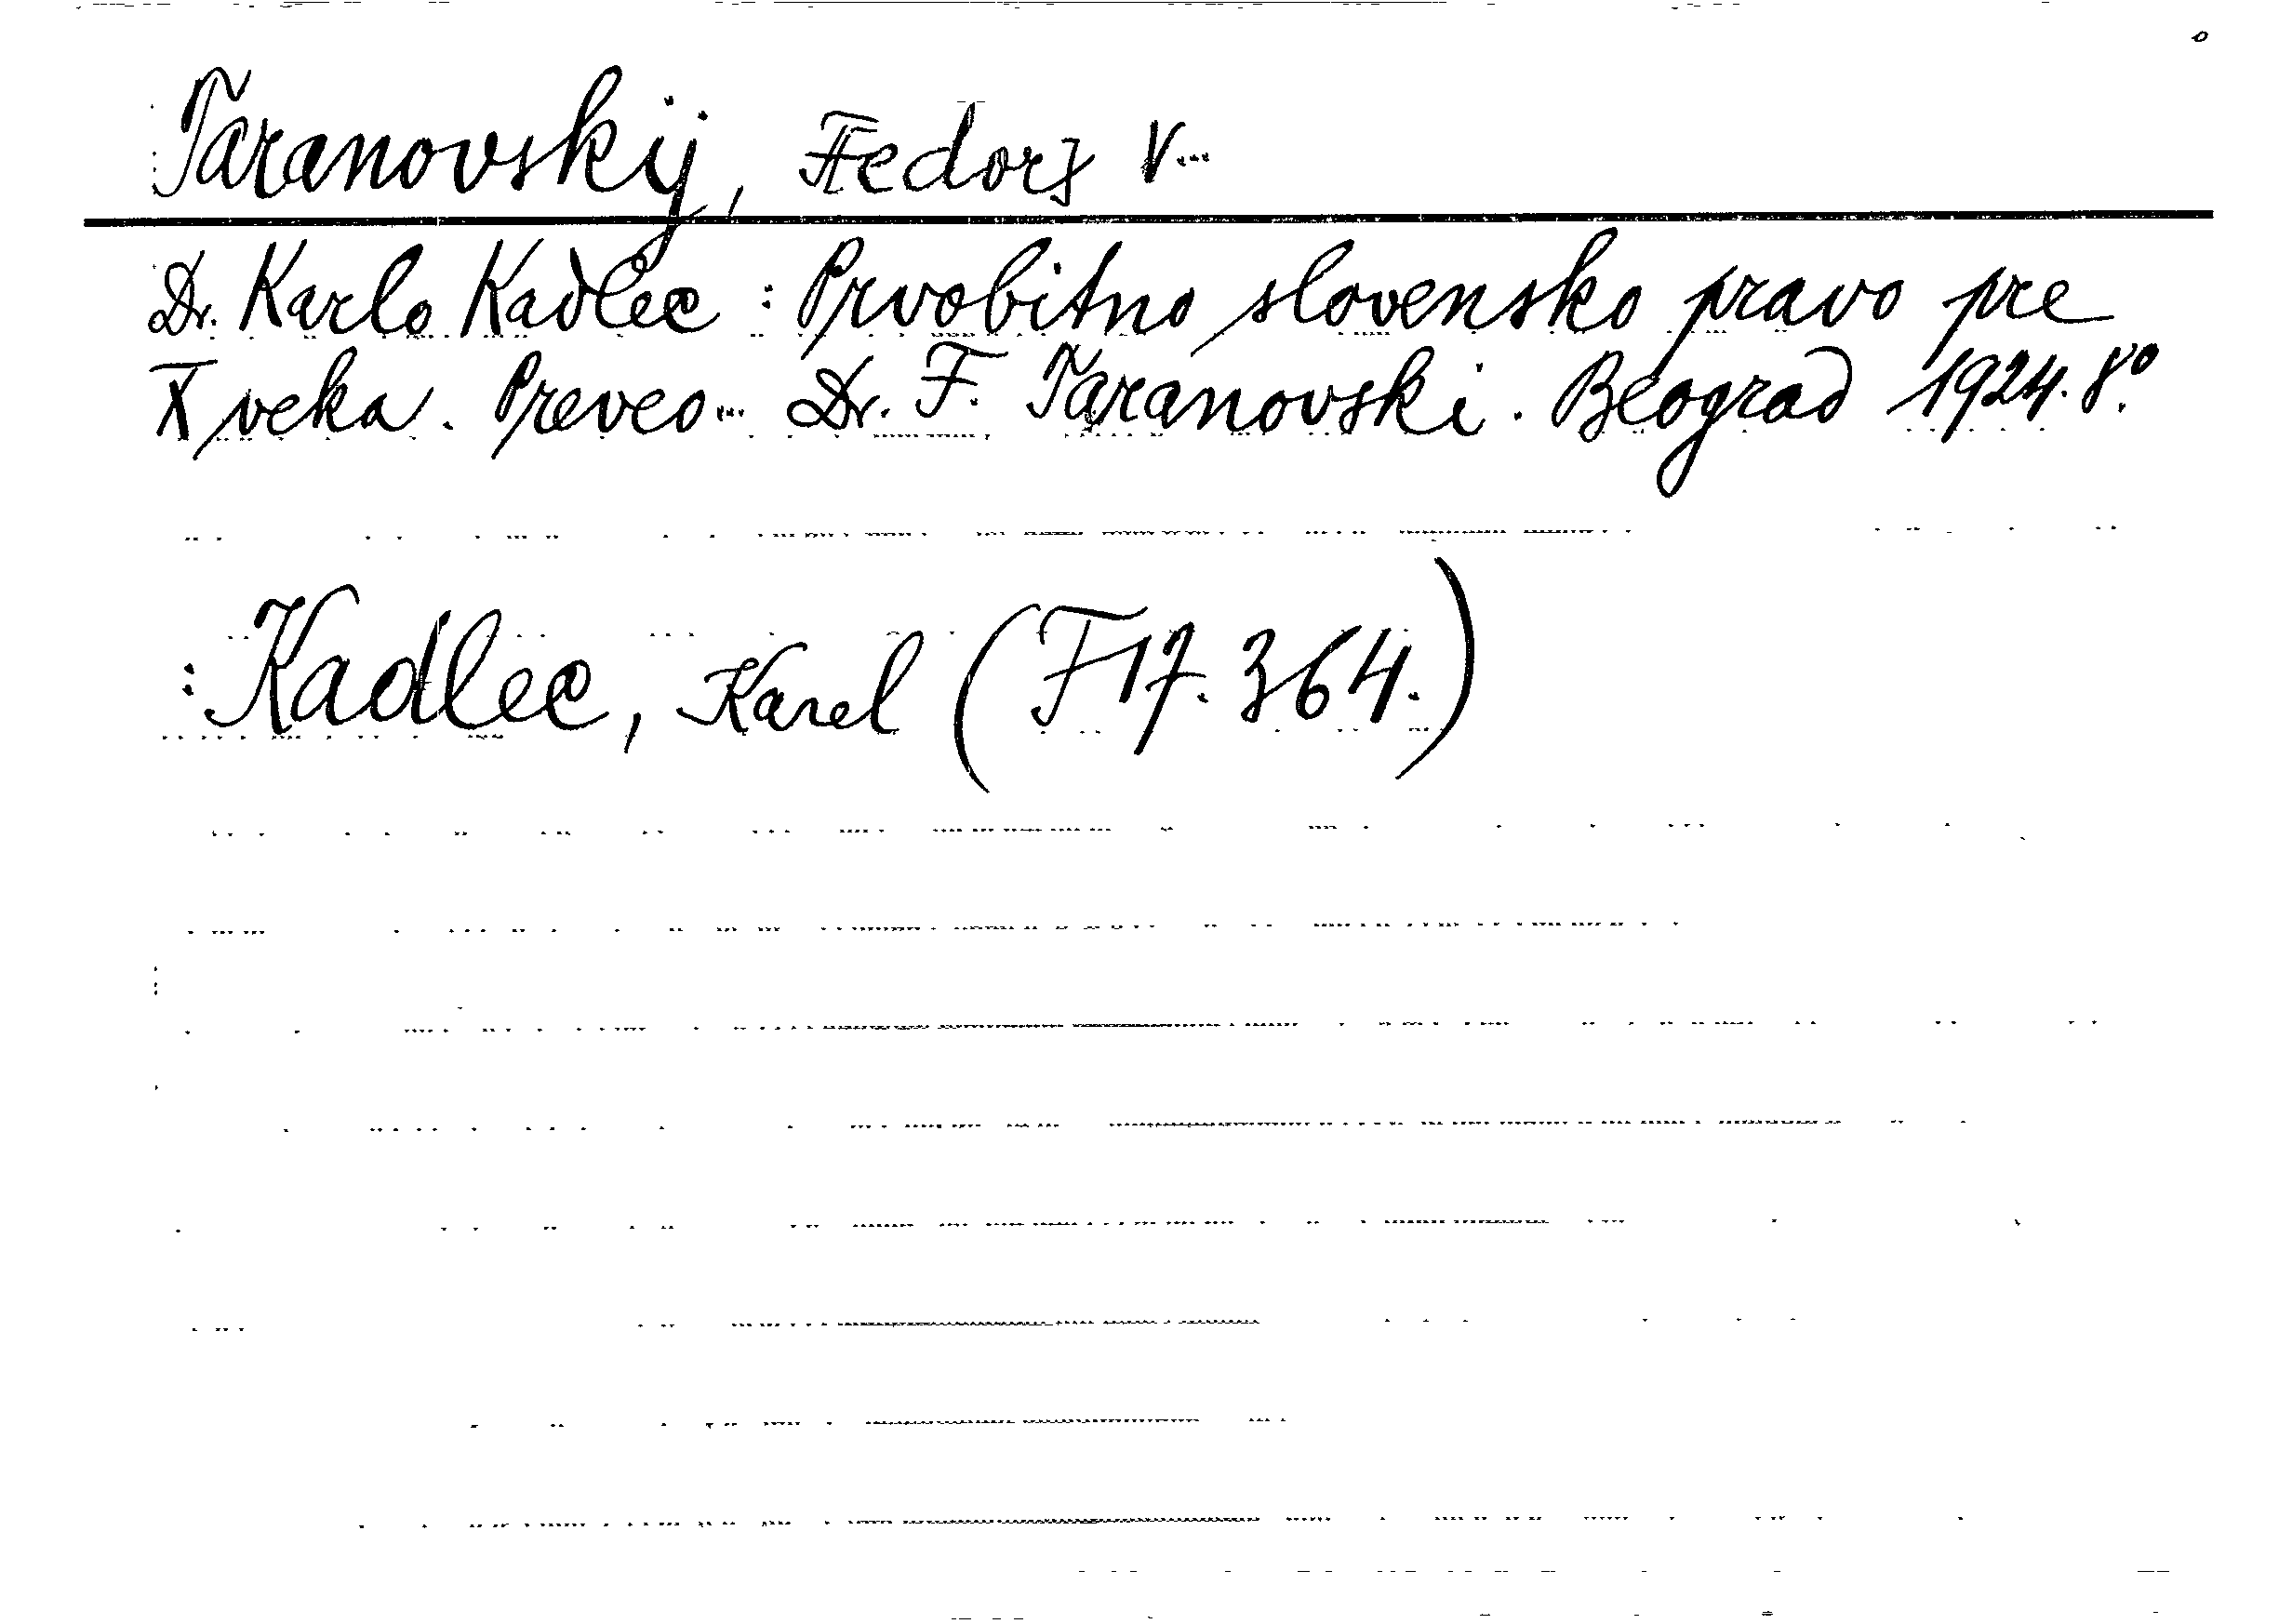 Taranovskij, Fedorz V...
Dr. Karlo Kadlec : Prvobitno slovensko pravo pre
X veka. Preveo... Dr. F. Taranovski. Beograd 1924. 8º.
: Kadlec, Karel (F 17. 364.)